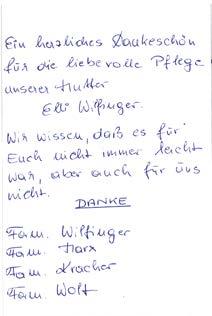 Ein herzliches Dankeschön
für die liebevolle Pflege
unserer Mutter
Elli Wilfinger.
Wir wissen, daß es für
Euch nicht immer leicht
war, aber auch für uns
nicht.
DANKE
Fam. Wilfinger
Fam. Marx
Fam. Kracher
Fam. Wolf